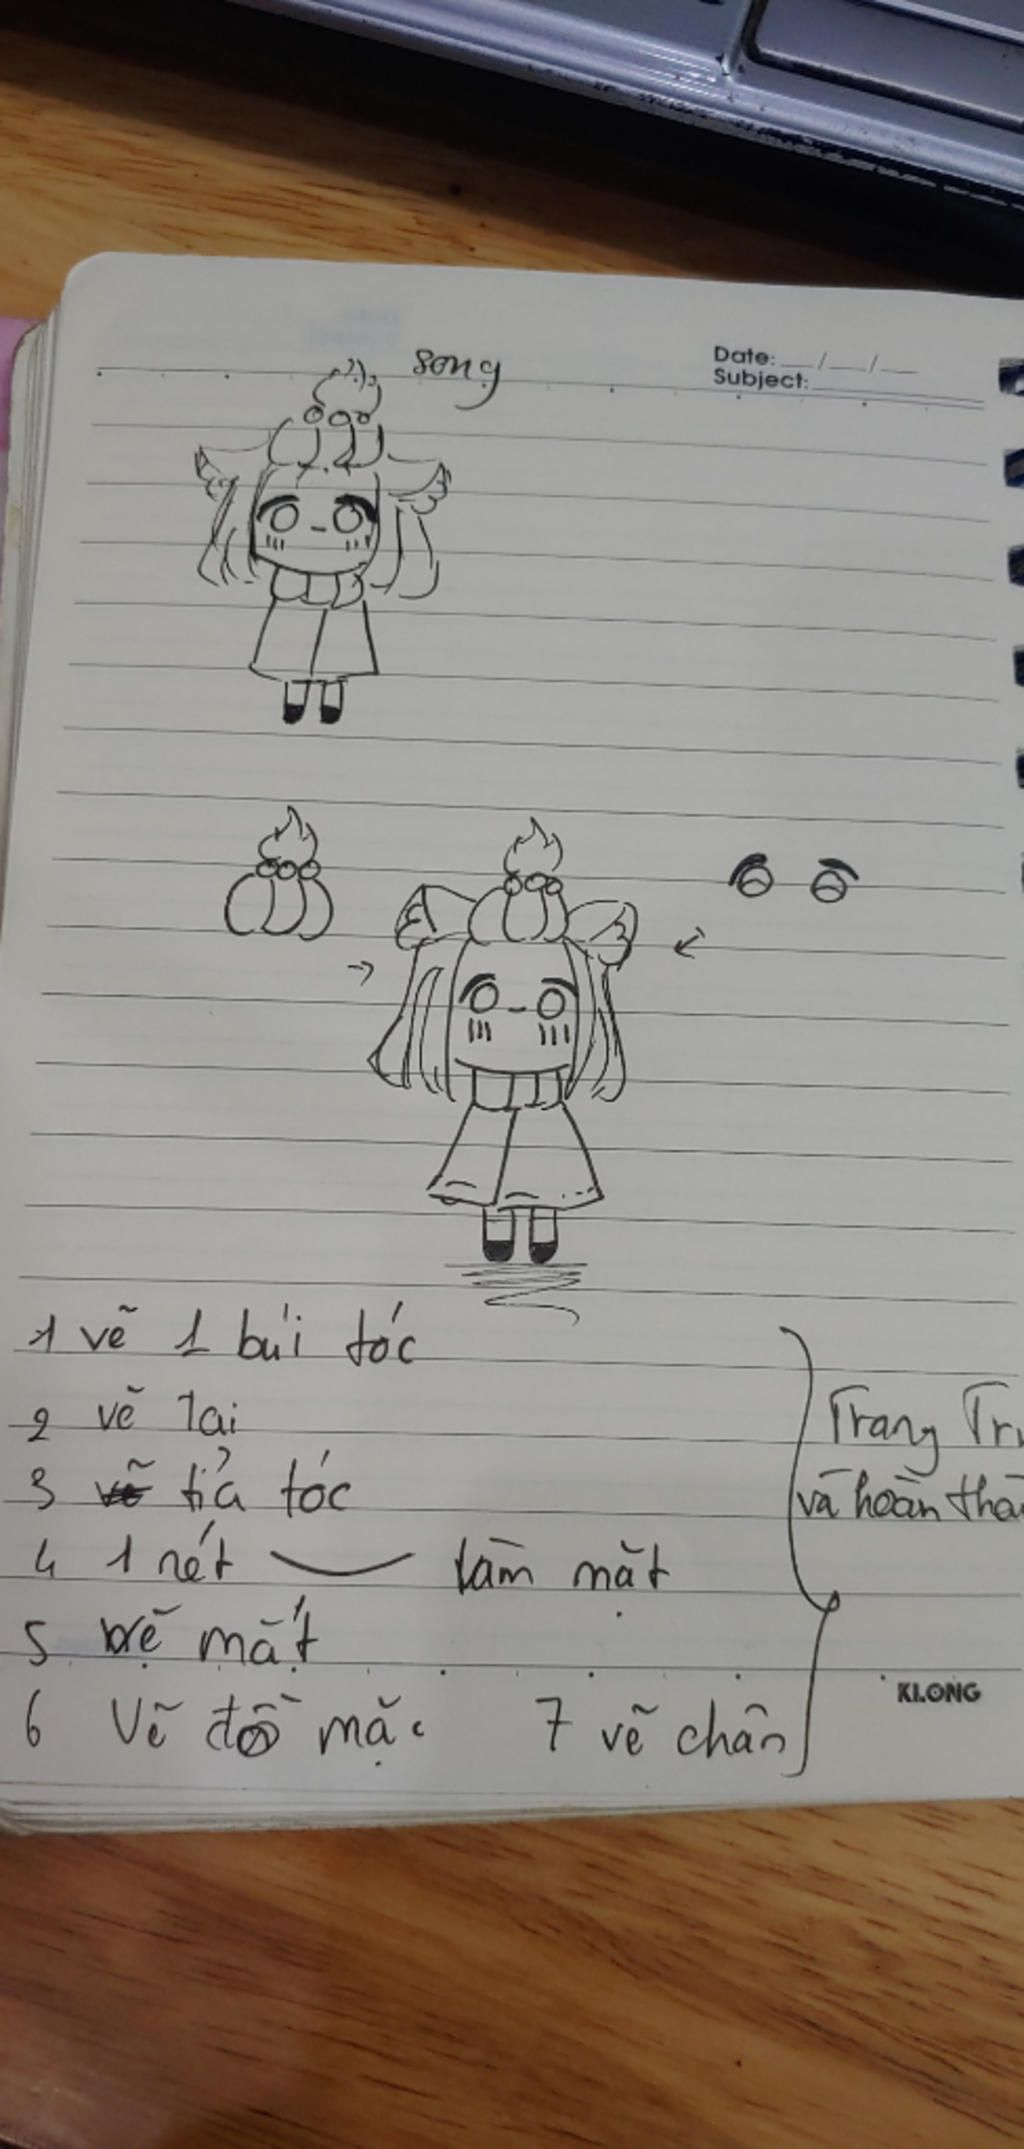 song
Date: __/__/__
Subject:
1 vẽ 1 búi tóc
2 vẽ tai
3 tỉa tóc
4 1 nét làm mặt
5 vẽ mắt
6 vẽ đồ mặc 7 vẽ chân
Trang Tr
và hoàn thà
KLONG